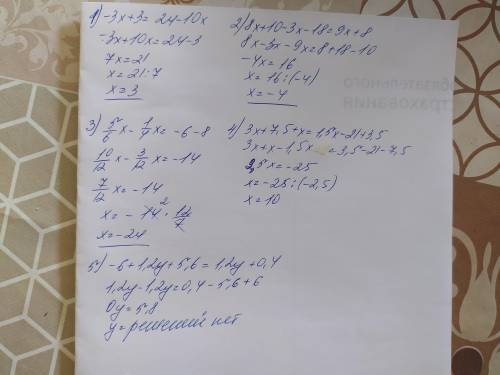 1) -3x+3= 24-10x
-3x+10x=24-3
7x=21
x=21:7
x=3
2) 8x+10-3x-18=9x+8
8x-3x-9x=8+18-10
-4x=16
x=16:(-4)
x=-4
3) 5/6 x - 1/4 x = -6-8
10/12 x - 3/12 x = -14
7/12 x = -14
x = -14² · 12/7
x=-24
4) 3x+7,5+x=1,5x-21+3,5
3x+x-1,5x =3,5-21-7,5
2,5x=-25
x=-25:(-2,5)
x=10
5) -6+1,2y+5,6=1,2y+0,4
1,2y-1,2y=0,4-5,6+6
0y=5,8
y=решений нет
обязательного
страхования